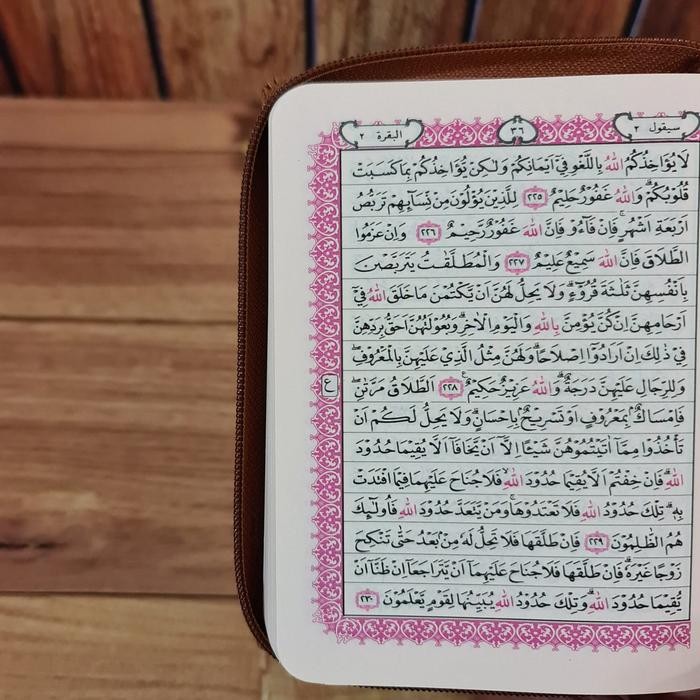 سيقول ٢
٣٦
البقرة ٢
لَا يُؤَاخِذُكُمُ اللّٰهُ بِاللَّغْوِ فِيْٓ اَيْمَانِكُمْ وَلٰكِنْ يُّؤَاخِذُكُمْ بِمَا كَسَبَتْ
قُلُوْبُكُمْ ۗ وَاللّٰهُ غَفُوْرٌ حَلِيْمٌ ٢٢٥ لِلَّذِيْنَ يُؤْلُوْنَ مِنْ نِّسَآىِٕهِمْ تَرَبُّصُ
اَرْبَعَةِ اَشْهُرٍ ۚ فَاِنْ فَآءُوْ فَاِنَّ اللّٰهَ غَفُوْرٌ رَّحِيْمٌ ٢٢٦ وَاِنْ عَزَمُوا
الطَّلَاقَ فَاِنَّ اللّٰهَ سَمِيْعٌ عَلِيْمٌ ٢٢٧ وَالْمُطَلَّقٰتُ يَتَرَبَّصْنَ
بِاَنْفُسِهِنَّ ثَلٰثَةَ قُرُوْٓءٍ ۗ وَلَا يَحِلُّ لَهُنَّ اَنْ يَّكْتُمْنَ مَا خَلَقَ اللّٰهُ فِيْٓ
اَرْحَامِهِنَّ اِنْ كُنَّ يُؤْمِنَّ بِاللّٰهِ وَالْيَوْمِ الْاٰخِرِ ۗ وَبُعُوْلَتُهُنَّ اَحَقُّ بِرَدِّهِنَّ
فِيْ ذٰلِكَ اِنْ اَرَادُوْٓا اِصْلَاحًا ۗ وَلَهُنَّ مِثْلُ الَّذِيْ عَلَيْهِنَّ بِالْمَعْرُوْفِ ۖ
وَلِلرِّجَالِ عَلَيْهِنَّ دَرَجَةٌ ۗ وَاللّٰهُ عَزِيْزٌ حَكِيْمٌ ٢٢٨ اَلطَّلَاقُ مَرَّتٰنِ ۖ
ع
فَاِمْسَاكٌۢ بِمَعْرُوْفٍ اَوْ تَسْرِيْحٌۢ بِاِحْسَانٍ ۗ وَلَا يَحِلُّ لَكُمْ اَنْ
تَأْخُذُوْا مِمَّآ اٰتَيْتُمُوْهُنَّ شَيْـًٔا اِلَّآ اَنْ يَّخَافَآ اَلَّا يُقِيْمَا حُدُوْدَ
اللّٰهِ ۗ فَاِنْ خِفْتُمْ اَلَّا يُقِيْمَا حُدُوْدَ اللّٰهِ ۙ فَلَا جُنَاحَ عَلَيْهِمَا فِيْمَا افْتَدَتْ
بِهٖ ۗ تِلْكَ حُدُوْدُ اللّٰهِ فَلَا تَعْتَدُوْهَا ۚ وَمَنْ يَّتَعَدَّ حُدُوْدَ اللّٰهِ فَاُولٰۤىِٕكَ
هُمُ الظّٰلِمُوْنَ ٢٢٩ فَاِنْ طَلَّقَهَا فَلَا تَحِلُّ لَهٗ مِنْۢ بَعْدُ حَتّٰى تَنْكِحَ
زَوْجًا غَيْرَهٗ ۗ فَاِنْ طَلَّقَهَا فَلَا جُنَاحَ عَلَيْهِمَآ اَنْ يَّتَرَاجَعَآ اِنْ ظَنَّآ اَنْ
يُّقِيْمَا حُدُوْدَ اللّٰهِ ۗ وَتِلْكَ حُدُوْدُ اللّٰهِ يُبَيِّنُهَا لِقَوْمٍ يَّعْلَمُوْنَ ٢٣٠